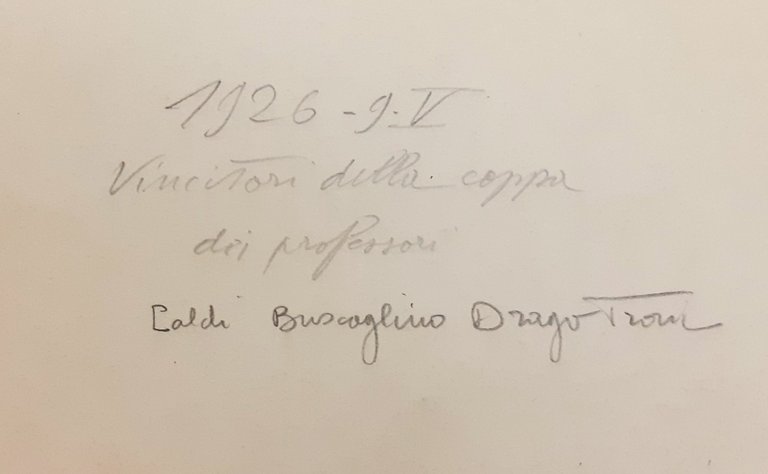 1926 - 9. V
Vincitori della coppa
dei professori
Caldi Buscaglino Drago Troni